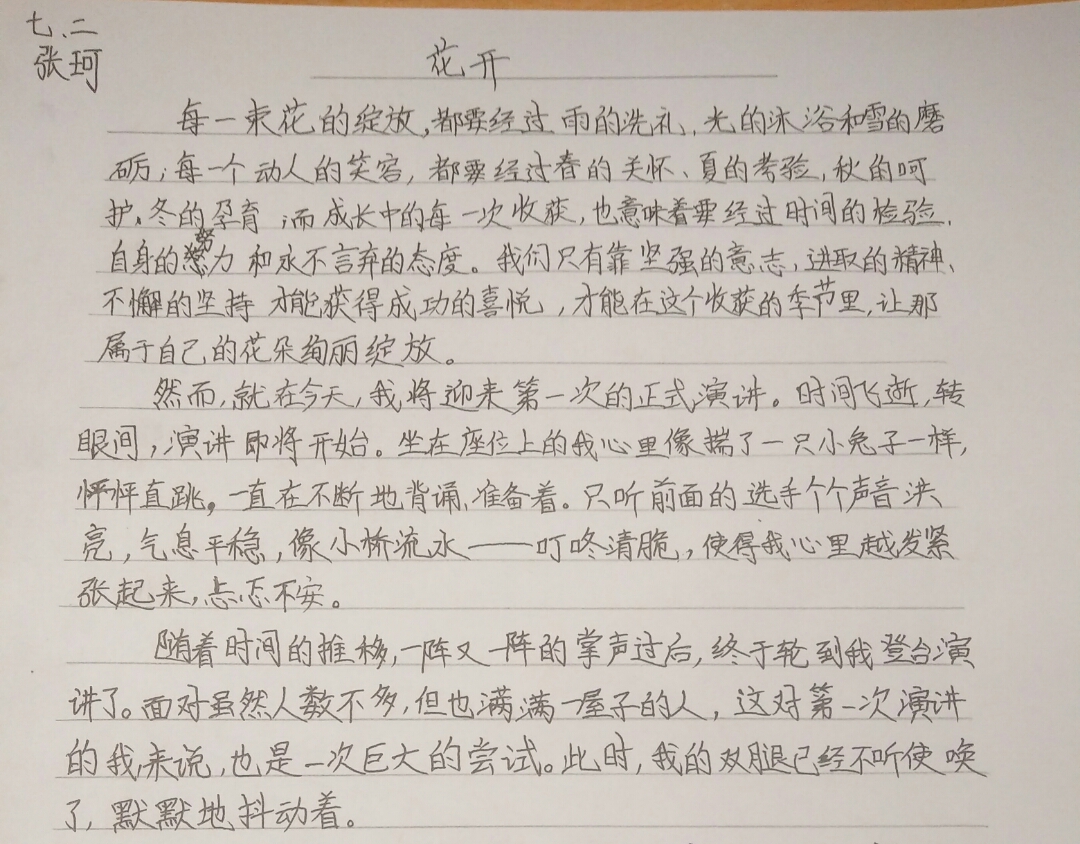 七、二
张珂
花开
每一束花的绽放,都要经过雨的洗礼、光的沐浴和雪的磨
砺;每一个动人的笑容,都要经过春的关怀、夏的考验,秋的呵
护、冬的孕育;而成长中的每一次收获,也意味着要经过时间的检验、
自身的努力和永不言弃的态度。我们只有靠坚强的意志、进取的精神、
不懈的坚持才能获得成功的喜悦,才能在这个收获的季节里,让那
属于自己的花朵绚丽绽放。
然而,就在今天,我将迎来第一次的正式演讲。时间飞逝,转
眼间,演讲即将开始。坐在座位上的我心里像揣了一只小兔子一样,
怦怦直跳。一直在不断地背诵、准备着。只听前面的选手个个声音洪
亮,气息平稳,像小桥流水——叮咚清脆,使得我心里越发紧
张起来,忐忑不安。
随着时间的推移,一阵又一阵的掌声过后,终于轮到我登台演
讲了。面对虽然人数不多,但也满满一屋子的人,这对第一次演讲
的我来说,也是一次巨大的尝试。此时,我的双腿已经不听使唤
了,默默地抖动着。